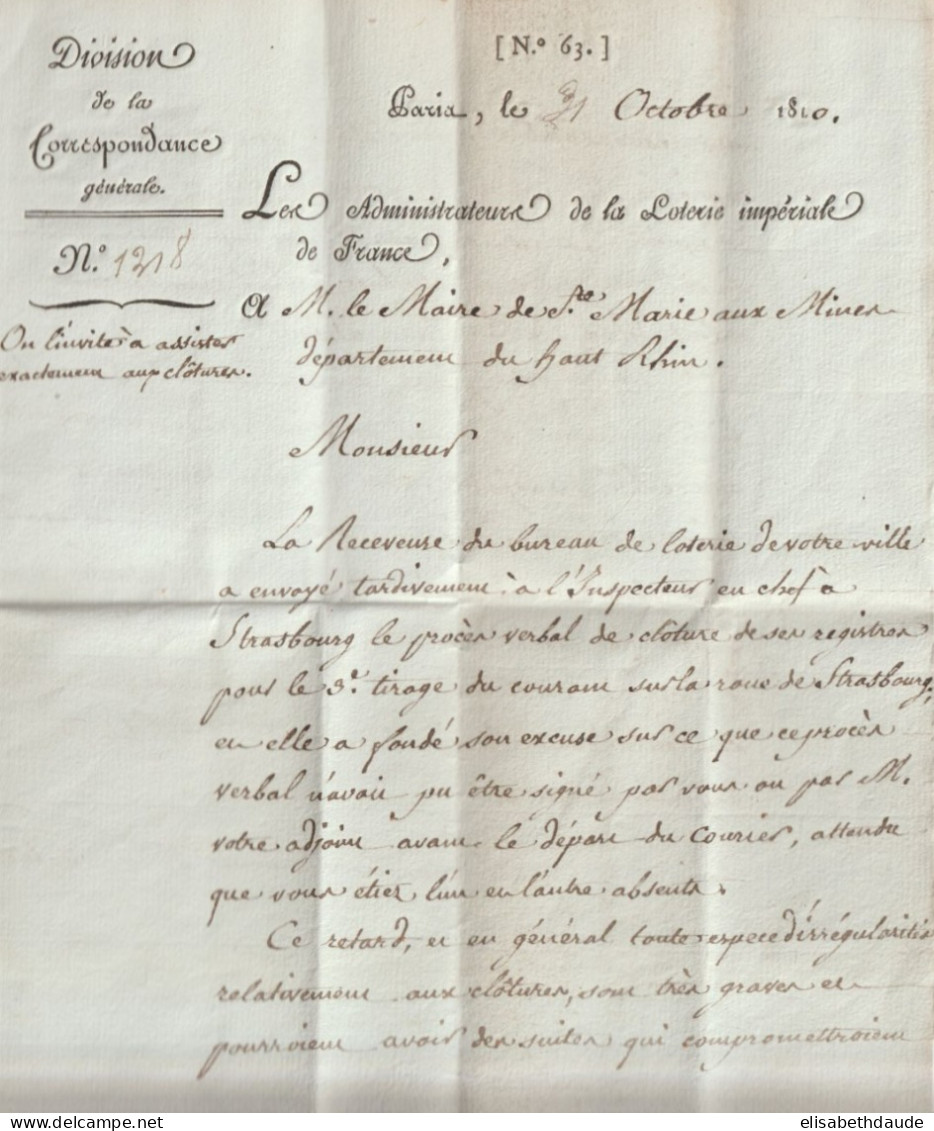 Division
de la
Correspondance
générale.
N.° 1218
On l'invite à assister
exactement aux clôtures.
[ N.° 63. ]
Paris, le 31 Octobre 1810.
Les Administrateurs de la Loterie impériale
de France,
A M. le Maire de S.te Marie aux Mines
département du haut Rhin.
Monsieur
La Receveuse du bureau de loterie de votre ville
a envoyé tardivement à l'Inspecteur en chef à
Strasbourg le procès verbal de clôture de ses registres
pour le 3.e tirage du courant sur la roue de Strasbourg,
et elle a fondé son excuse sur ce que ce procès
verbal n'avait pu être signé par vous ou par M.
votre adjoint avant le départ du Courier, attendu
que vous étiez l'un et l'autre absents.
Ce retard, et en général toute espece d'irrégularités
relativement aux clôtures, sont très graves et
pourroient avoir des suites qui compromettroient
elisabethdaude